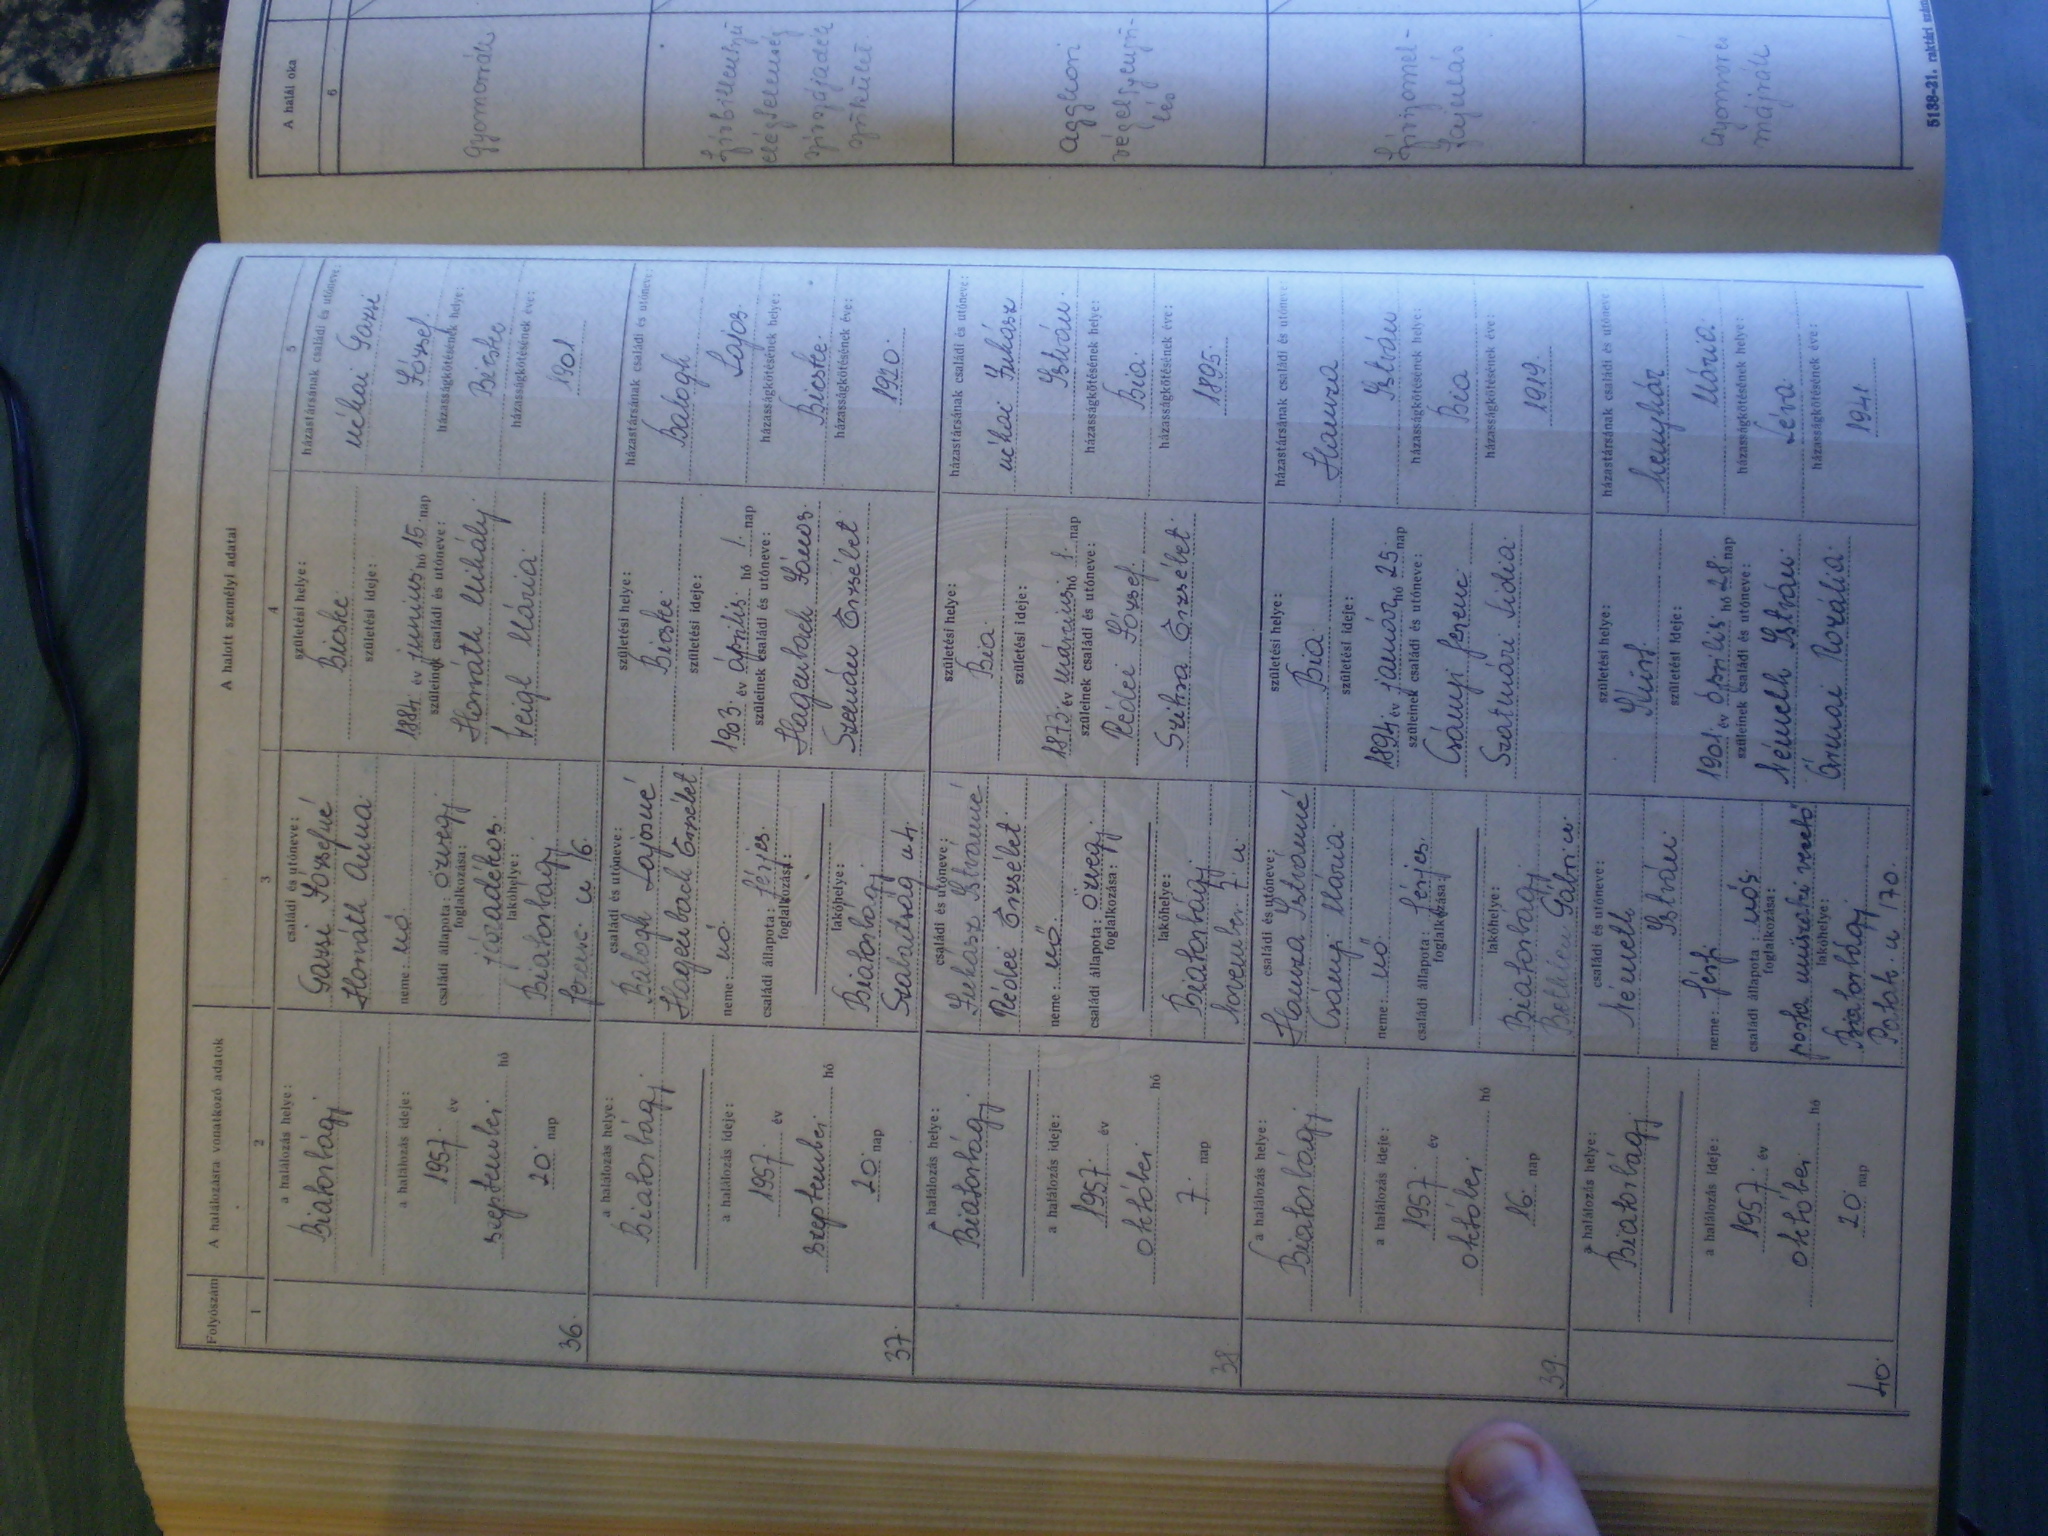 Folyószám
A halálozásra vonatkozó adatok
A halott személyi adatai
A halál oka
1
2
3
4
5
6
36.
a halálozás helye:
Biatorbágy
a halálozás ideje:
1957. év
szeptember hó
20. nap
családi és utóneve:
Gazsi Józsefné
Horváth Anna.
neme: nő.
családi állapota: özvegy.
foglalkozása:
járadékos.
lakóhelye:
Biatorbágy
ferenc. u 16.
születési helye:
Bicske.
születési ideje:
1884. év junius hó 15. nap
szüleinek családi és utóneve:
Horváth Mihály.
Mária.
házastársának családi és utóneve:
néhai Gazsi
József.
házasságkötésének helye:
Bicske
házasságkötésének éve:
1901
Gyomorrák
37.
a halálozás helye:
Biatorbágy.
a halálozás ideje:
1957. év
szeptember hó
20. nap
családi és utóneve:
Balogh Lajosné
Hagenbach Erzsébet
neme: nő.
családi állapota: férjes.
foglalkozása:
lakóhelye:
Biatorbágy
Szabadság u 4.
születési helye:
Bicske.
születési ideje:
1903. év április. hó 1. nap
szüleinek családi és utóneve:
Hagenbach János.
Szemán Erzsébet.
házastársának családi és utóneve:
Balogh
Lajos.
házasságkötésének helye:
Bicske.
házasságkötésének éve:
1920.
Szívbillentyű
elégtelenség
szívszájadék
szűkület.
38
a halálozás helye:
Biatorbágy.
a halálozás ideje:
1957. év
október hó
7. nap
családi és utóneve:
Juhász Istvánné
Rédei Erzsébet.
neme: nő.
családi állapota: özvegy.
foglalkozása:
lakóhelye:
Biatorbágy
November 7 u.
születési helye:
Bia.
születési ideje:
1873. év március hó 1. nap
szüleinek családi és utóneve:
Rédei József.
Szikra Erzsébet.
házastársának családi és utóneve:
néhai Juhász
István.
házasságkötésének helye:
Bia.
házasságkötésének éve:
1895.
Aggkori
végelgyengü-
lés
39.
a halálozás helye:
Biatorbágy.
a halálozás ideje:
1957. év
október hó
16. nap
családi és utóneve:
Hamza Istvánné
Csányi Mária.
neme: nő
családi állapota: férjes.
foglalkozása:
lakóhelye:
Biatorbágy.
Bethlen Gábor u.
születési helye:
Bia.
születési ideje:
1894. év január hó 25. nap
szüleinek családi és utóneve:
Csányi ferenc.
Szatmári Lidia.
házastársának családi és utóneve:
Hamza
István
házasságkötésének helye:
Bia
házasságkötésének éve:
1919.
40.
a halálozás helye:
Biatorbágy.
a halálozás ideje:
1957. év
október hó
20. nap
családi és utóneve:
Németh
István.
neme: férfi
családi állapota: nős.
foglalkozása:
posta műszaki vezető
lakóhelye:
Biatorbágy
Patak. u 170.
születési helye:
születési ideje:
1901 év április hó 28. nap
szüleinek családi és utóneve:
Németh István.
Rozália.
házastársának családi és utóneve
Menyhár
Mária.
házasságkötésének helye:
Léva.
házasságkötésének éve:
1941
Gyomor és
májrák
5138-31. raktári szám